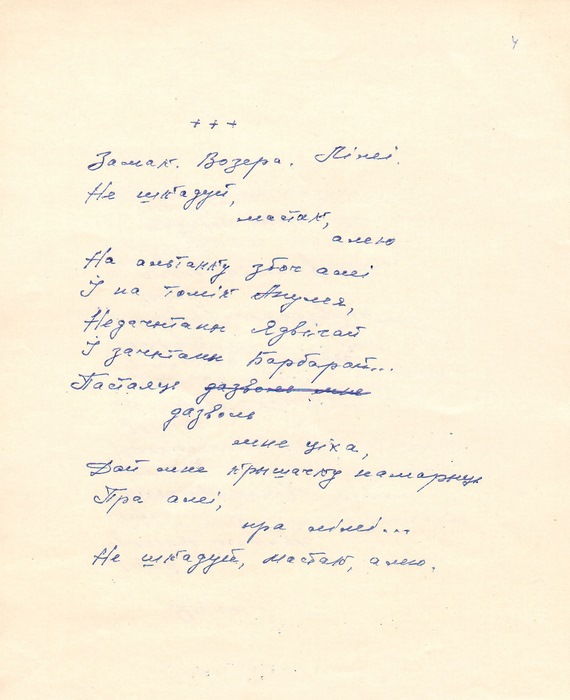 4
+++
Замак. Возера. Лілеі.
Не шкадуй,
мастак,
алею
На альтанку збоч алеі
І на томік Апулея,
Недачытаны Ядвігай
І зачытаны Барбарай...
Пастаяць дазволь мне
дазволь
мне ціха,
Дай мне крышачку памарыць
Пра алеі,
пра лілеі...
Не шкадуй, мастак, алею.